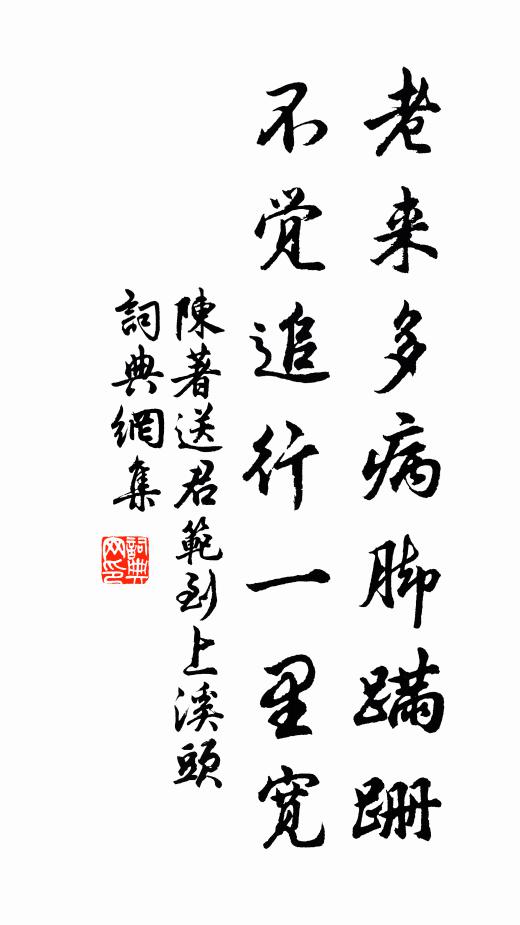 老来多病脚蹒跚
不觉追行一里宽
陳著送君範到上溪頭
詞典網集
詞典网印